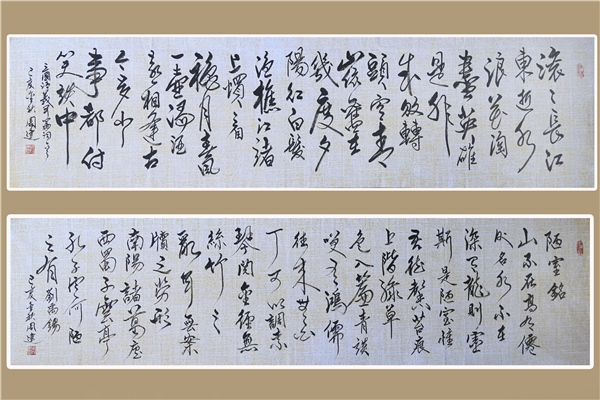 滚々長江
東逝水
浪花淘
盡英雄
是非
成敗轉
頭空青
山依舊在
幾度夕
陽紅白髮
漁樵江渚
上慣看
秋月春風
一壺濁酒
喜相逢古
今多少
事都付
笑談中
三國演義
己亥金秋周建
陋室銘
山不在高有僊
則名水不在
深有龍則靈
斯是陋室惟
吾德馨苔痕
上階綠草
色入簾青談
笑有鴻儒
往來無白
丁可以調素
琴閱金經無
絲竹之
亂耳無案
牘之勞形
南陽諸葛廬
西蜀子雲亭
孔子云何陋
之有 劉禹錫
己亥金秋周建